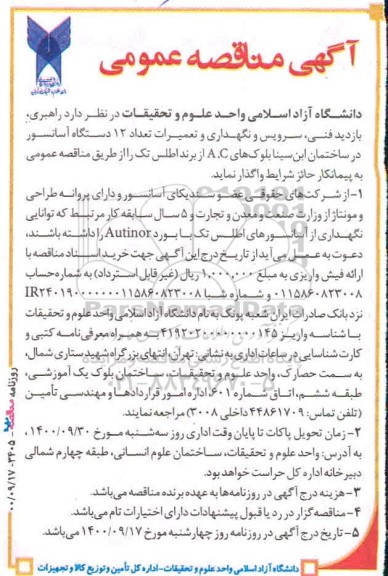 آگهی مناقصه عمومی
دانشگاه آزاد اسلامی واحد علوم و تحقیقات در نظر دارد راهبری،
بازدید فنی، سرویس و نگهداری و تعمیرات تعداد ۱۲ دستگاه آسانسور
در ساختمان ابن سینا بلوک‌های A.C از برند اطلس تک را از طریق مناقصه عمومی
به پیمانکار حائز شرایط واگذار نماید.
۱- از شرکت‌های حقوقی عضو سندیکای آسانسور و دارای پروانه طراحی
و مونتاژ از وزارت صنعت و معدن و تجارت و ۵ سال سابقه کار مرتبط که توانایی
نگهداری از آسانسورهای اطلس تک با بورد Autinor را داشته باشند،
دعوت به عمل می آید از تاریخ درج این آگهی جهت خرید اسناد مناقصه با
ارائه فیش واریزی به مبلغ ۱,۰۰۰,۰۰۰ ریال (غیر قابل استرداد) به شماره حساب
۰۱۱۵۸۶۰۸۲۳۰۰۸ و شماره شبا
نزد بانک صادرات ایران شعبه پونک به نام دانشگاه آزاد اسلامی واحد علوم و تحقیقات
با شناسه واریز به همراه معرفی نامه کتبی و
کارت شناسایی در ساعات اداری به نشانی: تهران، انتهای بزرگراه شهید ستاری شمال،
به سمت حصارک، واحد علوم و تحقیقات، ساختمان بلوک یک آموزشی،
طبقه ششم، اتاق شماره ۶۰۱ اداره امور قراردادها و مهندسی تأمین
(تلفن تماس: ۴۴۸۶۱۷۰۹ داخلی ۳۰۰۸) مراجعه نمایند.
۲- زمان تحویل پاکات تا پایان وقت اداری روز سه‌شنبه مورخ ۱۴۰۰/۰۹/۳۰،
به آدرس: واحد علوم و تحقیقات، ساختمان علوم انسانی، طبقه چهارم شمالی
دبیرخانه اداره کل حراست خواهد بود.
۳- هزینه درج آگهی در روزنامه‌ها به عهده برنده مناقصه می‌باشد.
۴- مناقصه‌گزار در رد یا قبول پیشنهادات دارای اختیارات تام می‌باشد.
۵- تاریخ درج آگهی در روزنامه روز چهارشنبه مورخ ۱۴۰۰/۰۹/۱۷ می‌باشد.
دانشگاه آزاد اسلامی واحد علوم و تحقیقات - اداره کل تأمین و توزیع کالا و تجهیزات
روزنامه مناقصه ۳۴۰۵ - ۰۰/۰۹/۱۷
۰۲۱-۸۸۳۴۹۶۷۰-۵